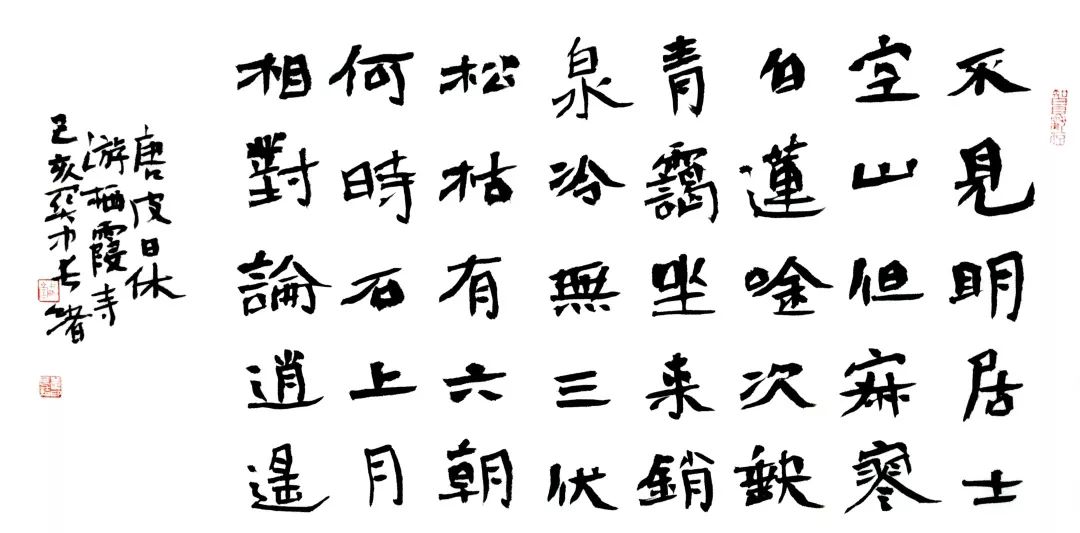 不見明居士
空山但寂寥
白蓮吟次缺
青靄坐来銷
泉冷無三伏
松枯有六朝
何時石上月
相對論逍遥
唐皮日休
游栖霞寺
己亥